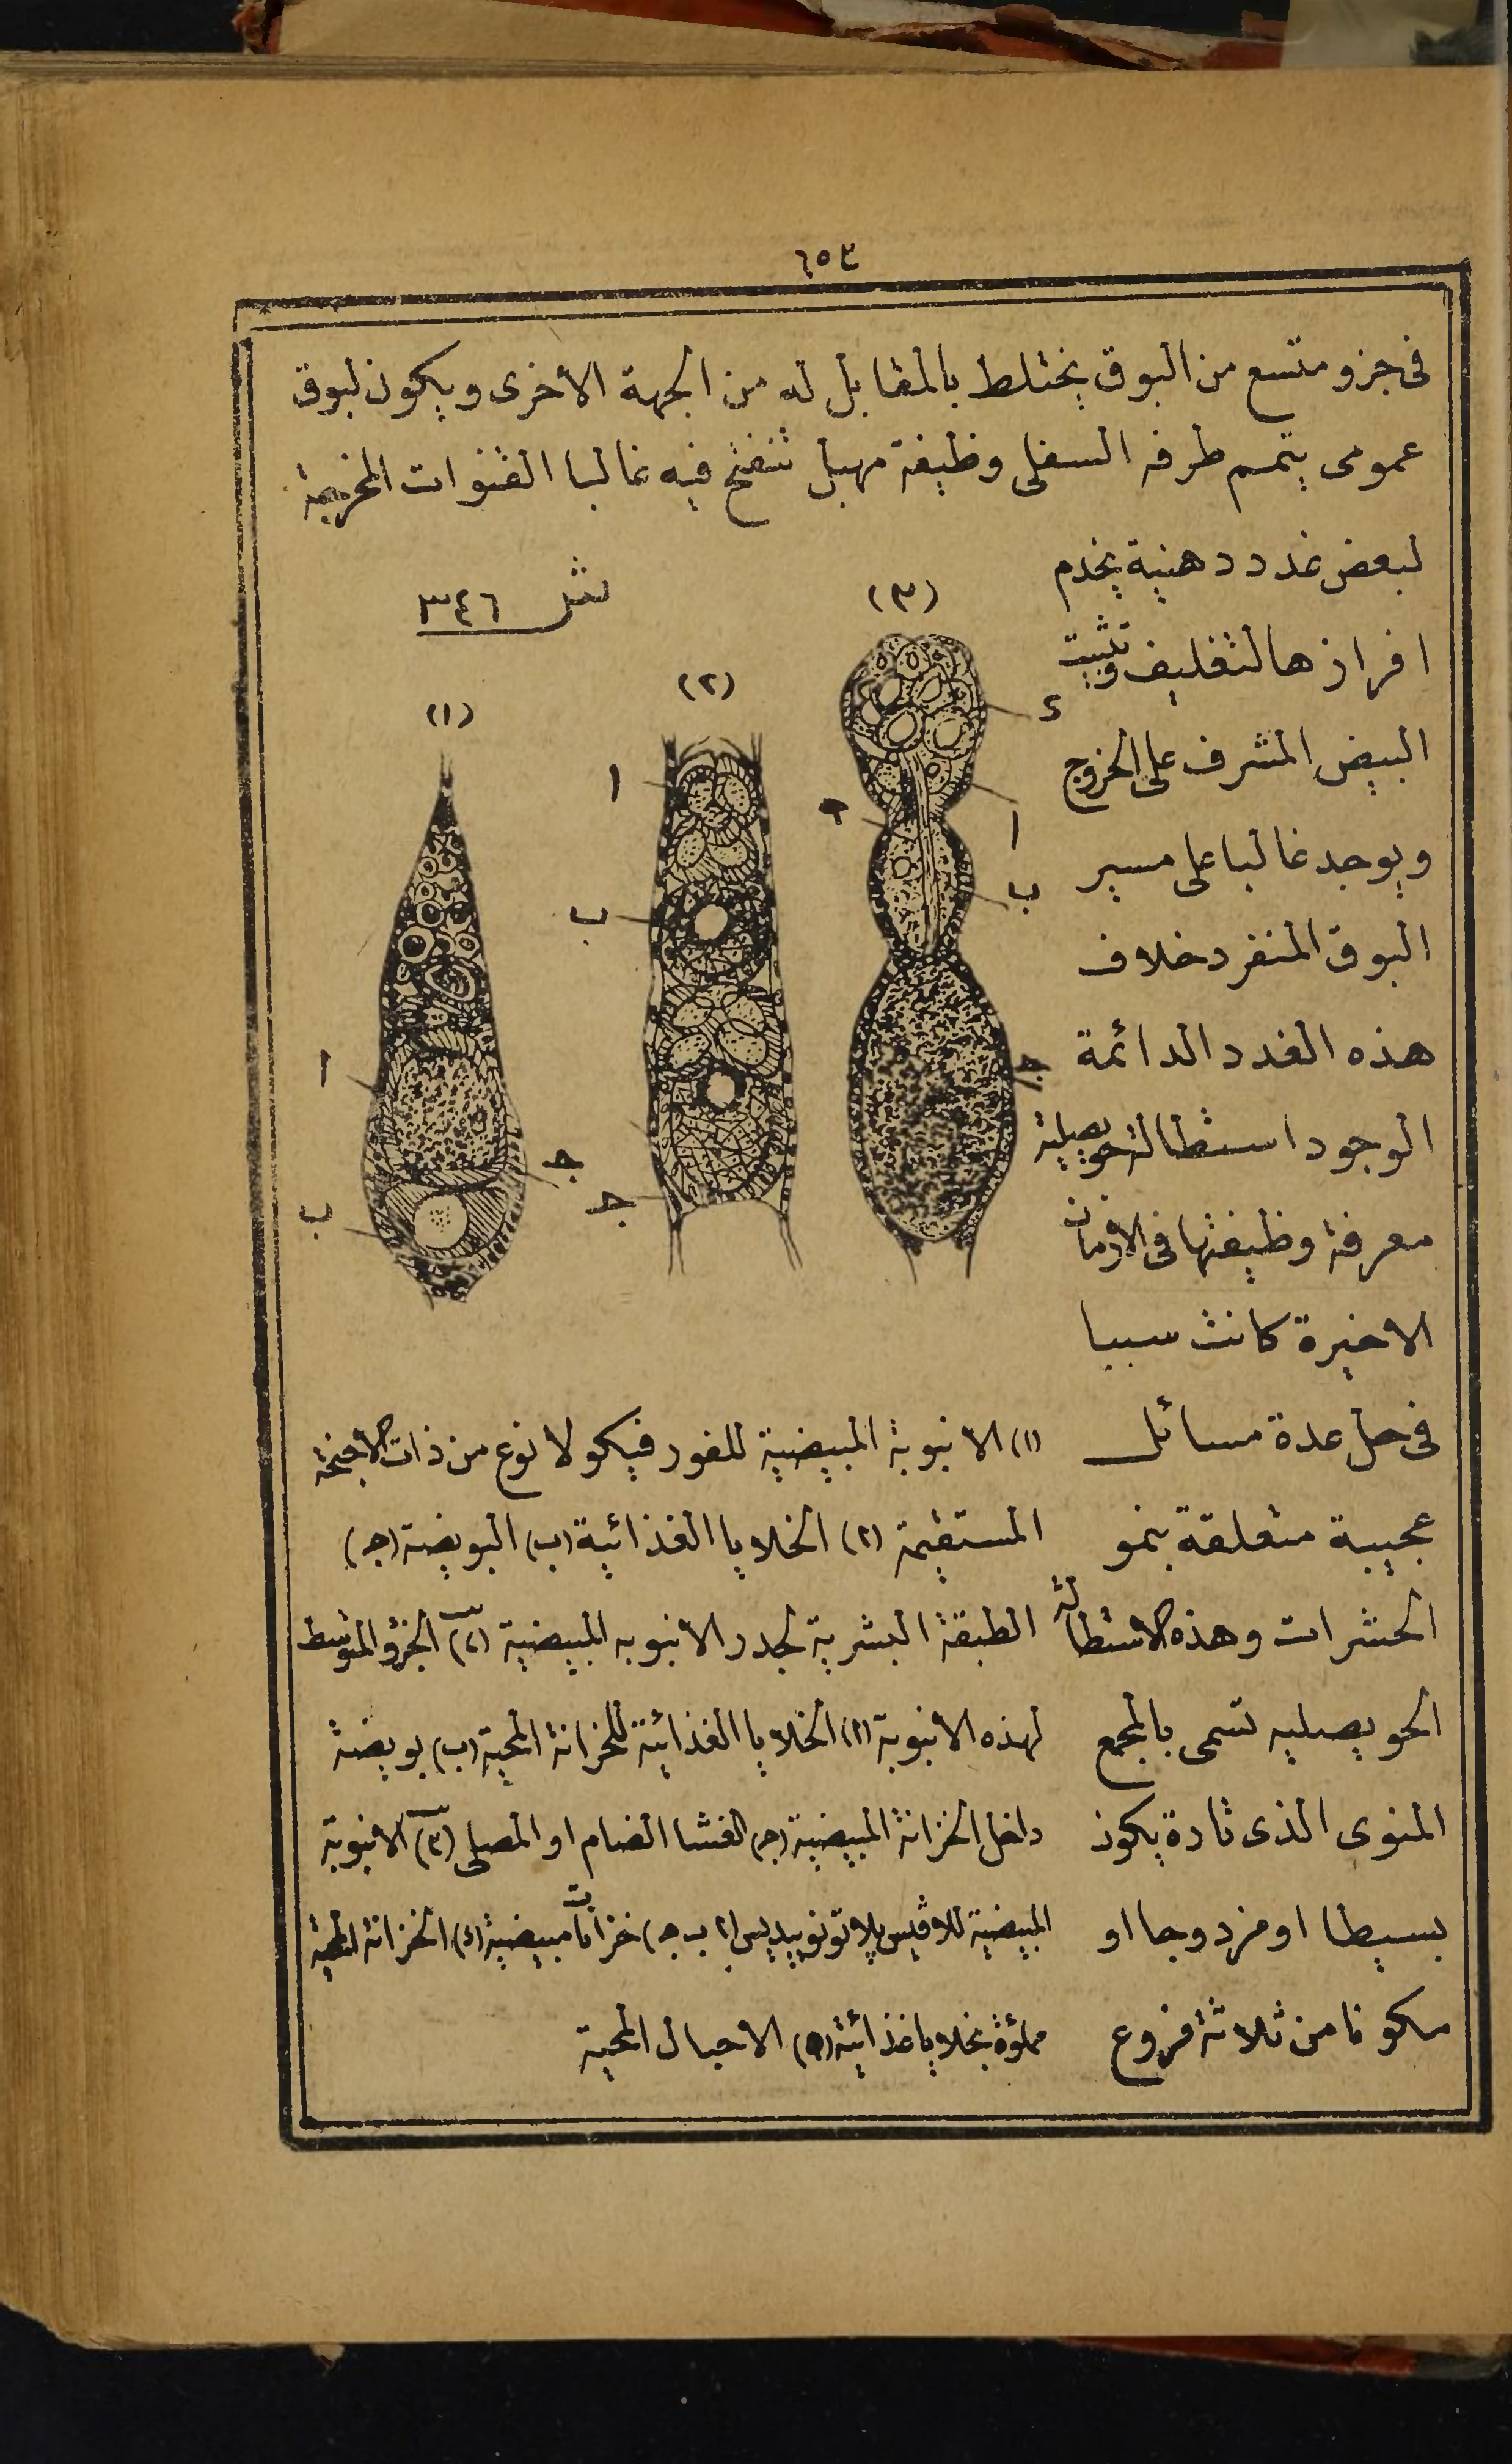 ٦٥٣
فى جزو متسع من البوق يختلط بالمقابل له من الجهة الأخرى ويكون لبوق
عمومى يتمم طرفه السفلى وظيفة مهبل تنفتح فيه غالبا القنوات المخرجة
لبعض غدد دهنية يخدم
افرازها لتغليف وتثبيت
البيض المشرف على الخروج
ويوجد غالبا على مسير
البوق المنفرد خلاف
هذه الغدد الدائمة
الوجود استطالة حويصلية
معرفة وظيفتها فى الازمان
الاخيرة كانت سببا
فى حل عدة مسائل
عجيبة متعلقة بنمو
الحشرات وهذه الاستطالة
الحويصليه تسمى بالمجمع
المنوى الذى تارة يكون
بسيطا او مزدوجا او
مكونا من ثلاثة فروع
شكل ٣٤٦
(١)
(٢)
(٣)
ا
ب
ج
ا
ب
ج
د
ا
ه
ب
ج
(١) الانبوبة المبيضية للفورفيكولا نوع من ذات الاجنحة
المستقيمة (ا) الخلايا الغذائية (ب) البويضة (ج)
الطبقة البشرية لجدر الانبوبه المبيضية (٢) الجزؤ المتوسط
لهذه الانبوبة (ا) الخلايا الغذائية للخزانة المحية (ب) بويضة
داخل الخزانة المبيضية (ج) الغشا الضام او المصلى (٣) الانبوبة
المبيضية للافيس پلاتونوپيديس (ا ب ج) خزانات مبيضية (د) الخزانة المحية
مملؤة بخلايا غذائية (ه) الاحبال المحية